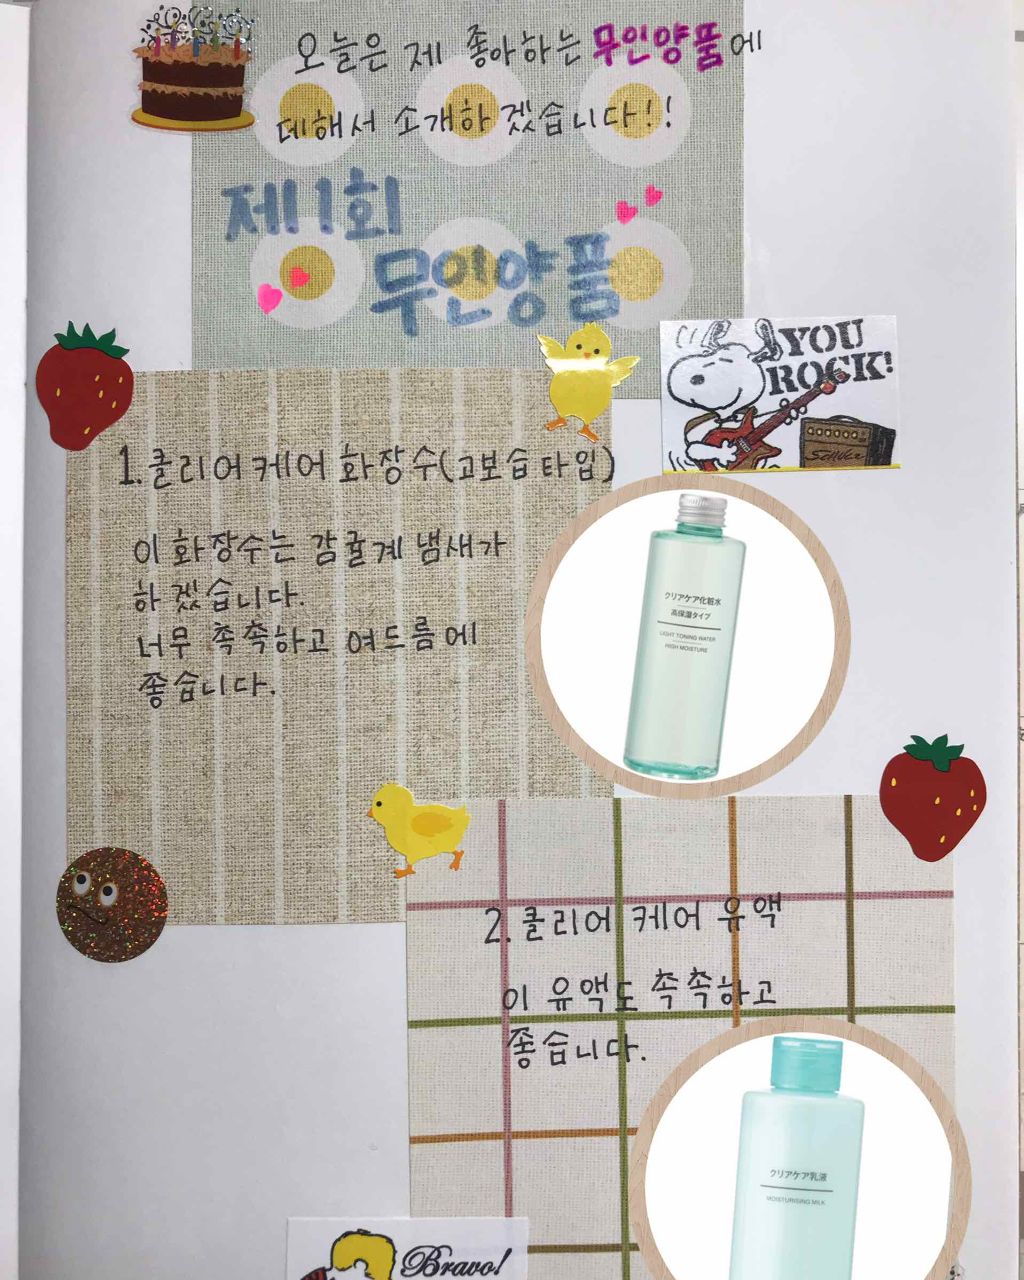 오늘은 제 좋아하는 무인양품에
데해서 소개하겠습니다!!
제1회
무인양품
YOU
ROCK!
1. 클리어케어 화장수(고보습타입)
이 화장수는 감귤계 냄새가
하겠습니다.
너무 촉촉하고 여드름에
좋습니다.
クリアケア化粧水
高保湿タイプ
LIGHT TONING WATER
HIGH MOISTURE
2. 클리어 케어 유액
이 유액도 촉촉하고
좋습니다.
クリアケア乳液
MOISTURISING MILK
Bravo!